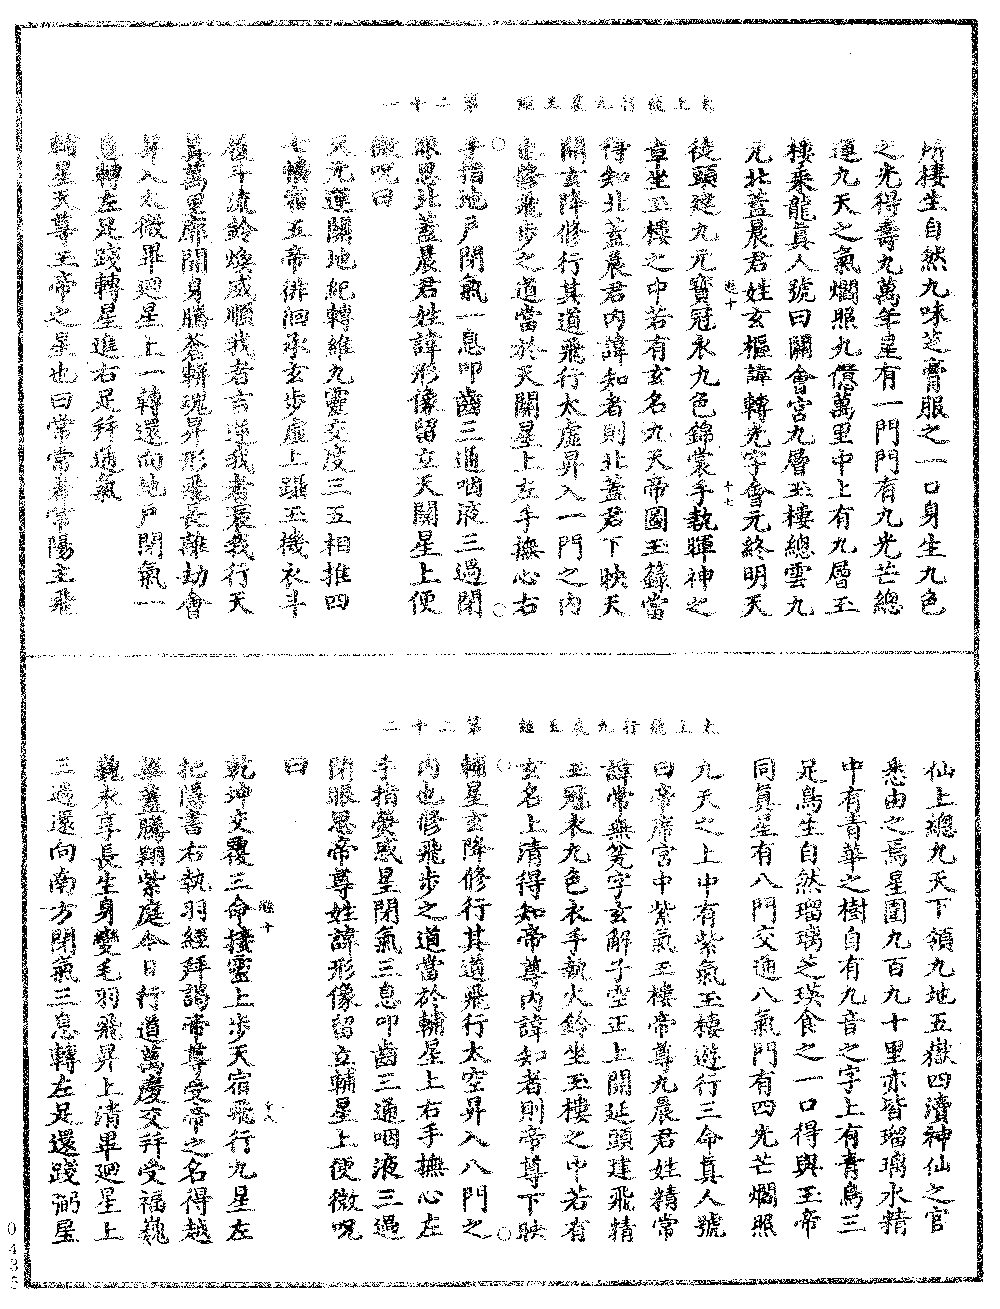 太上飛行九晨玉經　第二十一
所棲生自然九味芝膏服之一口身生九色
之光得壽九萬年星有一門門有九光芒總
運九天之氣爛照九億萬里中上有九層玉
樓乘龍真人號曰關會宮九層玉樓總雲九
元北蓋晨君姓玄樞諱轉光字會元終明天
徒頭建九元寶冠衣九色錦裳手執暉神之
章坐玉樓之中若有玄名九天帝圖玉籙當
得知北蓋晨君內諱知者則北蓋君下映天
關玄降修行其道飛行太虛昇入一門之內
也修飛步之道當於天關星上左手撫心右
手指地戶閉氣一息叩齒三通咽液三過閉
眼思北蓋晨君姓諱形像留立天關星上便
微呪曰
天元運關地紀轉維九靈交度三五相推四
七纏宿五帝徘徊承玄步虛上躡玉機衣斗
履斗流鈴煥威順我者吉逆我者衰我行天
昇入太微畢迴星上一轉還向地戶閉氣一
息轉左足踐轉星進右足拜通氣
輔星天尊玉帝之星也曰常常者常陽主飛
太上飛行九晨玉經　第二十二
仙上總九天下領九地五嶽四瀆神仙之官
悉由之焉星圍九百九十里亦皆瑠璃水精
中有青華之樹自有九音之字上有青鳥三
足鳥生自然瑠璃芝瑛食之一口得與玉帝
同真星有八門交通八氣門有四光芒爛照
九天之上中有紫氣玉樓遊行三命真人號
曰帝席宮中紫氣玉樓帝尊九晨君姓精常
諱常無字玄解子空正上開延頭建飛精
玉冠衣九色衣手執火鈴坐玉樓之中若有
玄名上清得知帝尊內諱知者則帝尊下映
輔星玄降修行其道飛行太空昇入八門之
內也修飛步之道當於輔星上右手撫心左
手指熒惑星閉氣三息叩齒三通咽液三過
閉眼思帝尊姓諱形像留立輔星上便微呪
曰
乾坤交覆三命接靈上步天宿飛行九星左
把隱書右執羽經拜謁帝尊受帝之名得越
華蓋騰翔紫庭今日行道萬慶交拜受福巍
巍永享長生身變毛羽飛昇上清畢迴星上
三過還向南方閉氣三息轉左足還踐弼星